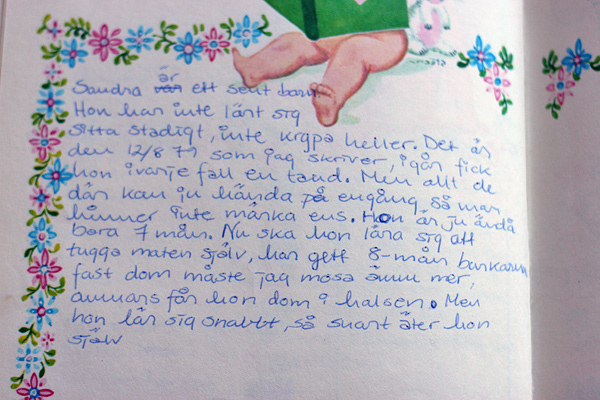 Sandra är ett sent barn.
Hon har inte lärt sig
sitta stadigt, inte krypa heller. Det är
den 12/8 79 som jag skriver, igår fick
hon ivarje fall en tand. Men allt de
där kan ju hända på engång, så man
hinner inte märka ens. Hon är ju ändå
bara 7 mån. Nu ska hon lära sig att
tugga maten själv, har gett 8-mån burkarna
fast dom måste jag mosa ännu mer,
annars får hon dom i halsen. Men
hon lär sig snabbt, så snart äter hon
själv